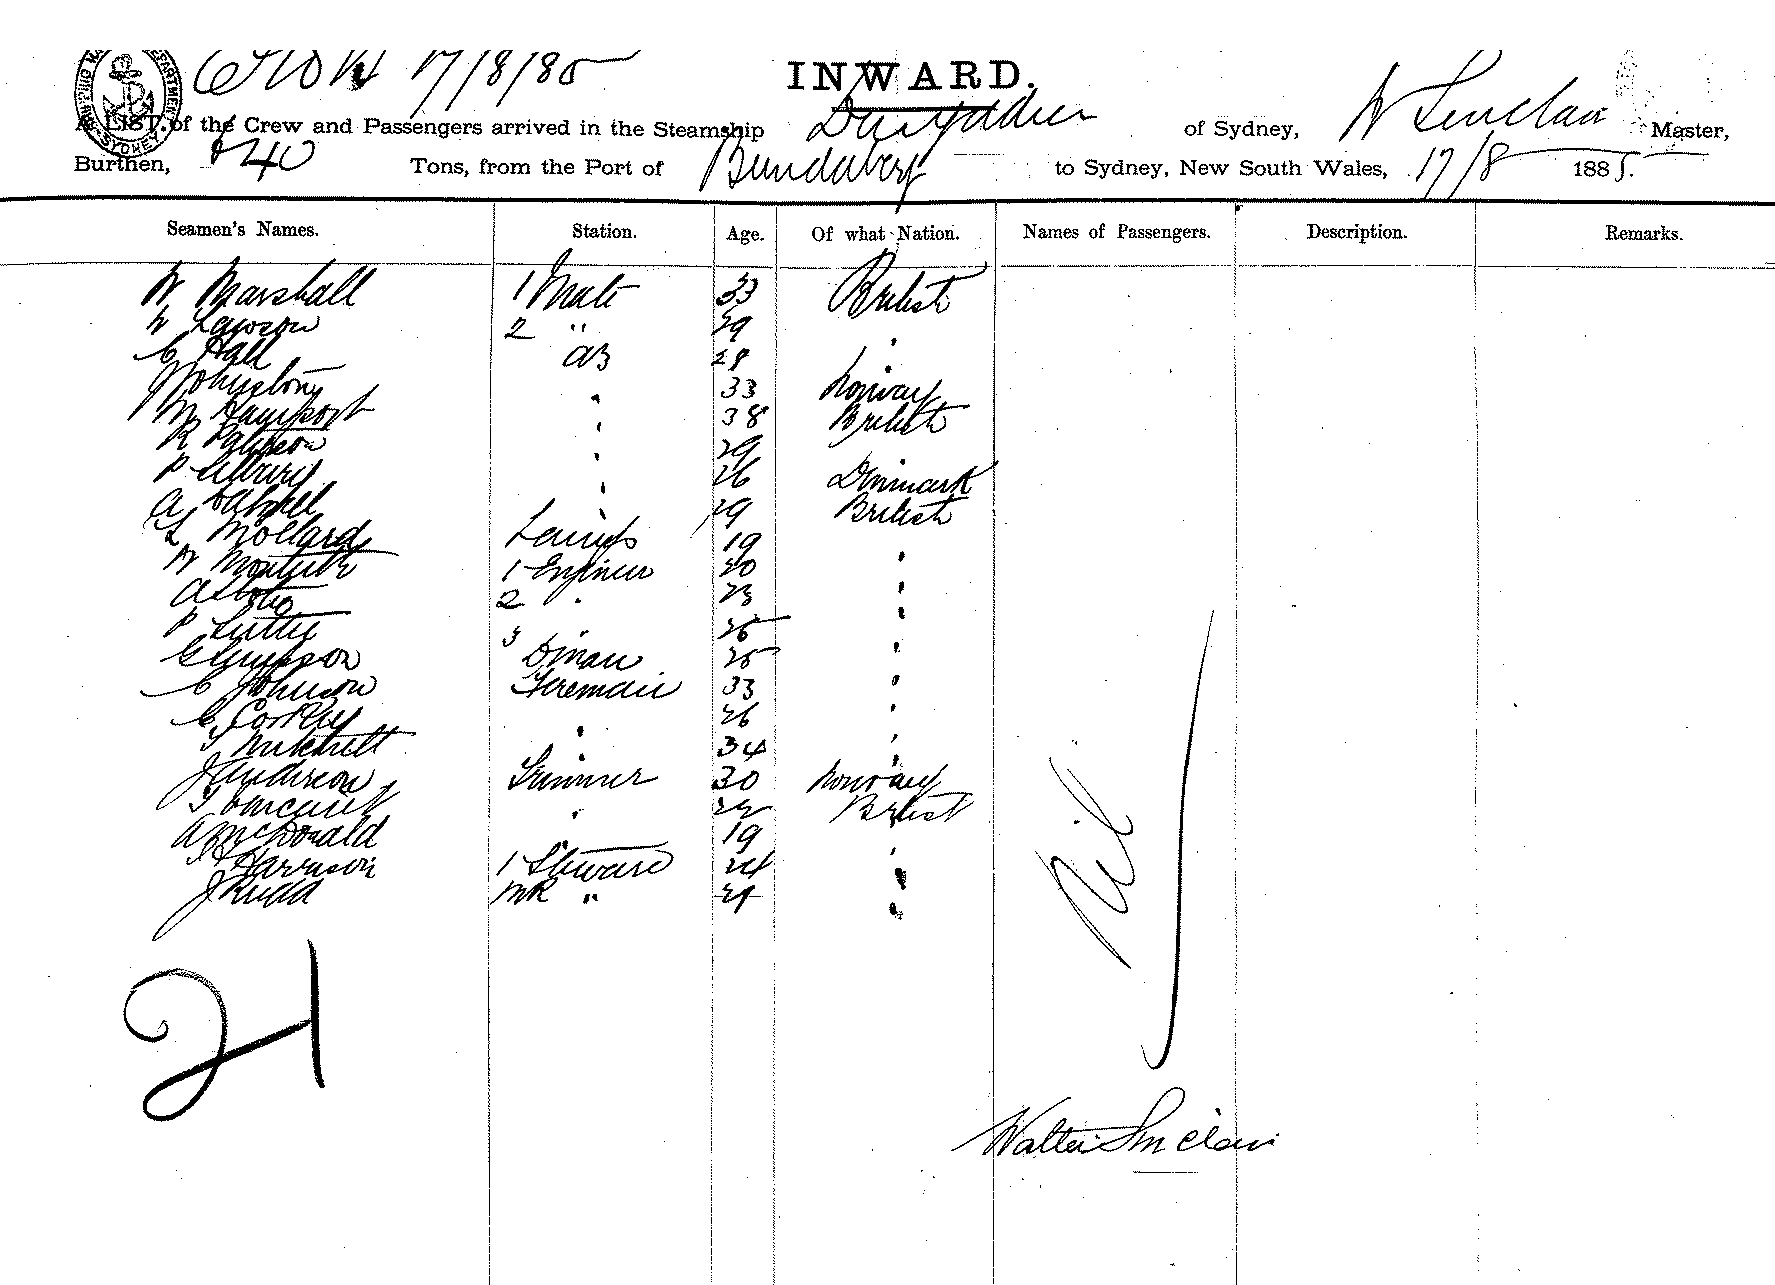 17/8/85
INWARD.
A LIST of the Crew and Passengers arrived in the Steamship of Sydney, W Sinclair Master,
Burthen, 440 Tons, from the Port of Bundaberg to Sydney, New South Wales, 17/8 1885.
Seamen's Names. Station. Age. Of what Nation. Names of Passengers. Description. Remarks.
W Marshall 1 Mate 33 British
W Lawson 2 " 29 "
C Hall AB 28 "
J Johnston " 33 Norway
38 British
R " 29
P " 26 Denmark
A Dalziell " 29 British
L Mollard Lamps 19 "
W Monteith 1 Engineer "
A 2 " 23 "
P 3 " 25 "
G Simpson Dman 25 "
C Johnson Fireman 33 "
C Corkey " 26 "
T Mitchell " 34 "
J Anderson Trimmer 30 Norway
T " 22 British
A McDonald 19 "
Harrison 1 Steward 24 "
J Rudd MR " "
Nil
21
Walter Sinclair